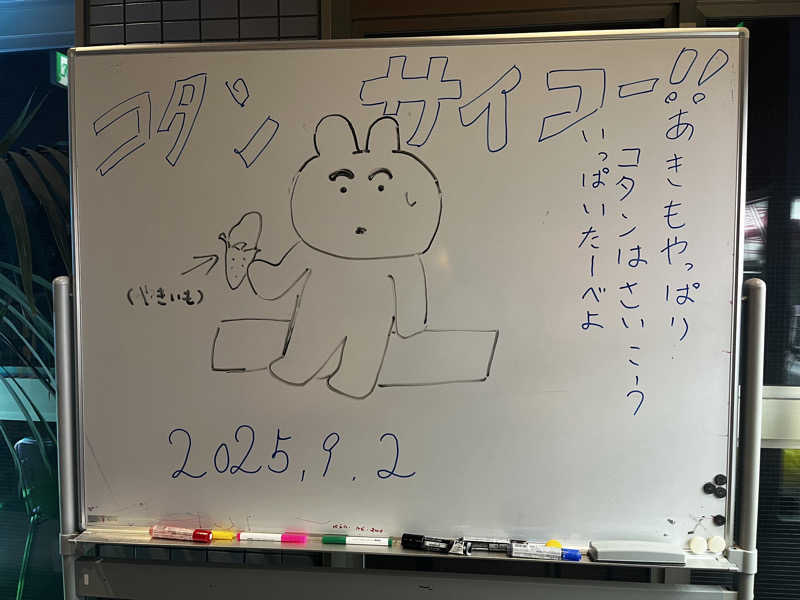 コタン サイコー!!
あきもやっぱり
コタンはさいこう
いっぱいたーべよ
(やきいも)
2025.9.2